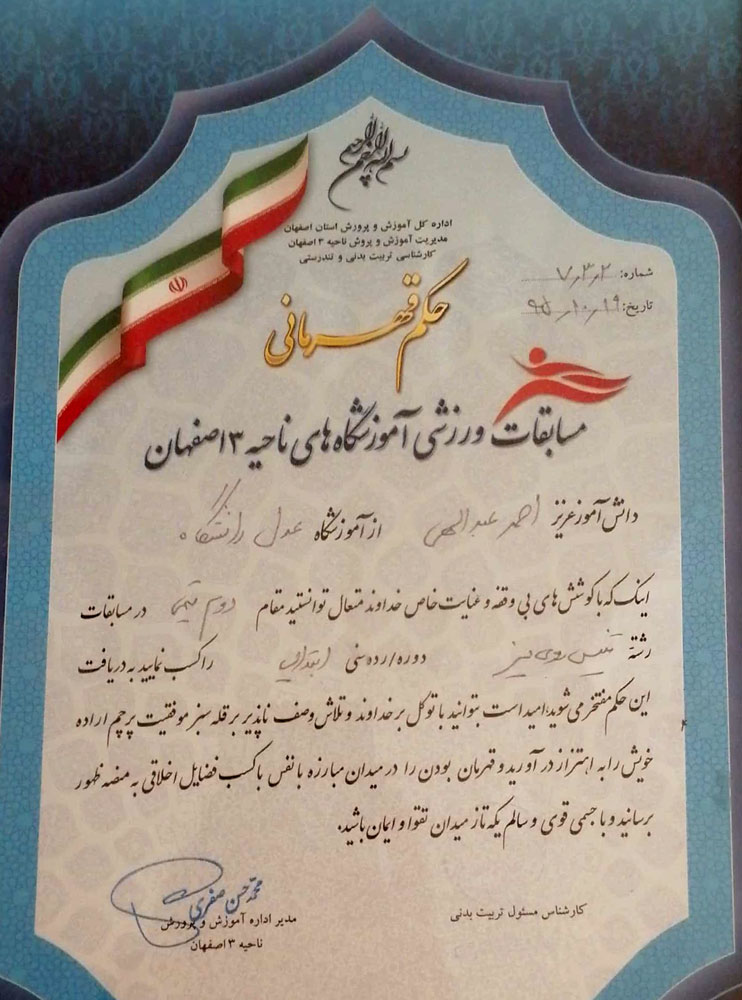 بسم الله الرحمن الرحیم
اداره کل آموزش و پرورش استان اصفهان
مدیریت آموزش و پروش ناحیه ۳ اصفهان
کارشناسی تربیت بدنی و تندرستی
شماره: ۷٫۳٫۲
تاریخ: ۹۵٫۱۰٫۱۹
حکم قهرمانی
مسابقات ورزشی آموزشگاه های ناحیه ۳ اصفهان
دانش آموز عزیز احمد عبدالهی از آموزشگاه عدل دانشگاه
اینک که با کوشش های بی وقفه و عنایت خاص خداوند متعال توانستید مقام دوم تیمی در مسابقات
رشته تنیس روی میز دوره/رده سنی ابتدایی را کسب نمایید به دریافت
این حکم مفتخر می شوید؛ امید است بتوانید با توکل بر خداوند و تلاش وصف ناپذیر بر قله سبز موفقیت پرچم اراده
خویش را به اهتزاز در آورید و قهرمان بودن را در میدان مبارزه با نفس با کسب فضایل اخلاقی به منصه ظهور
برسانید و با جسمی قوی و سالم یکه تاز میدان تقوا و ایمان باشید.
کارشناس مسئول تربیت بدنی
محمدحسن صفری
مدیر اداره آموزش و پرورش
ناحیه ۳ اصفهان